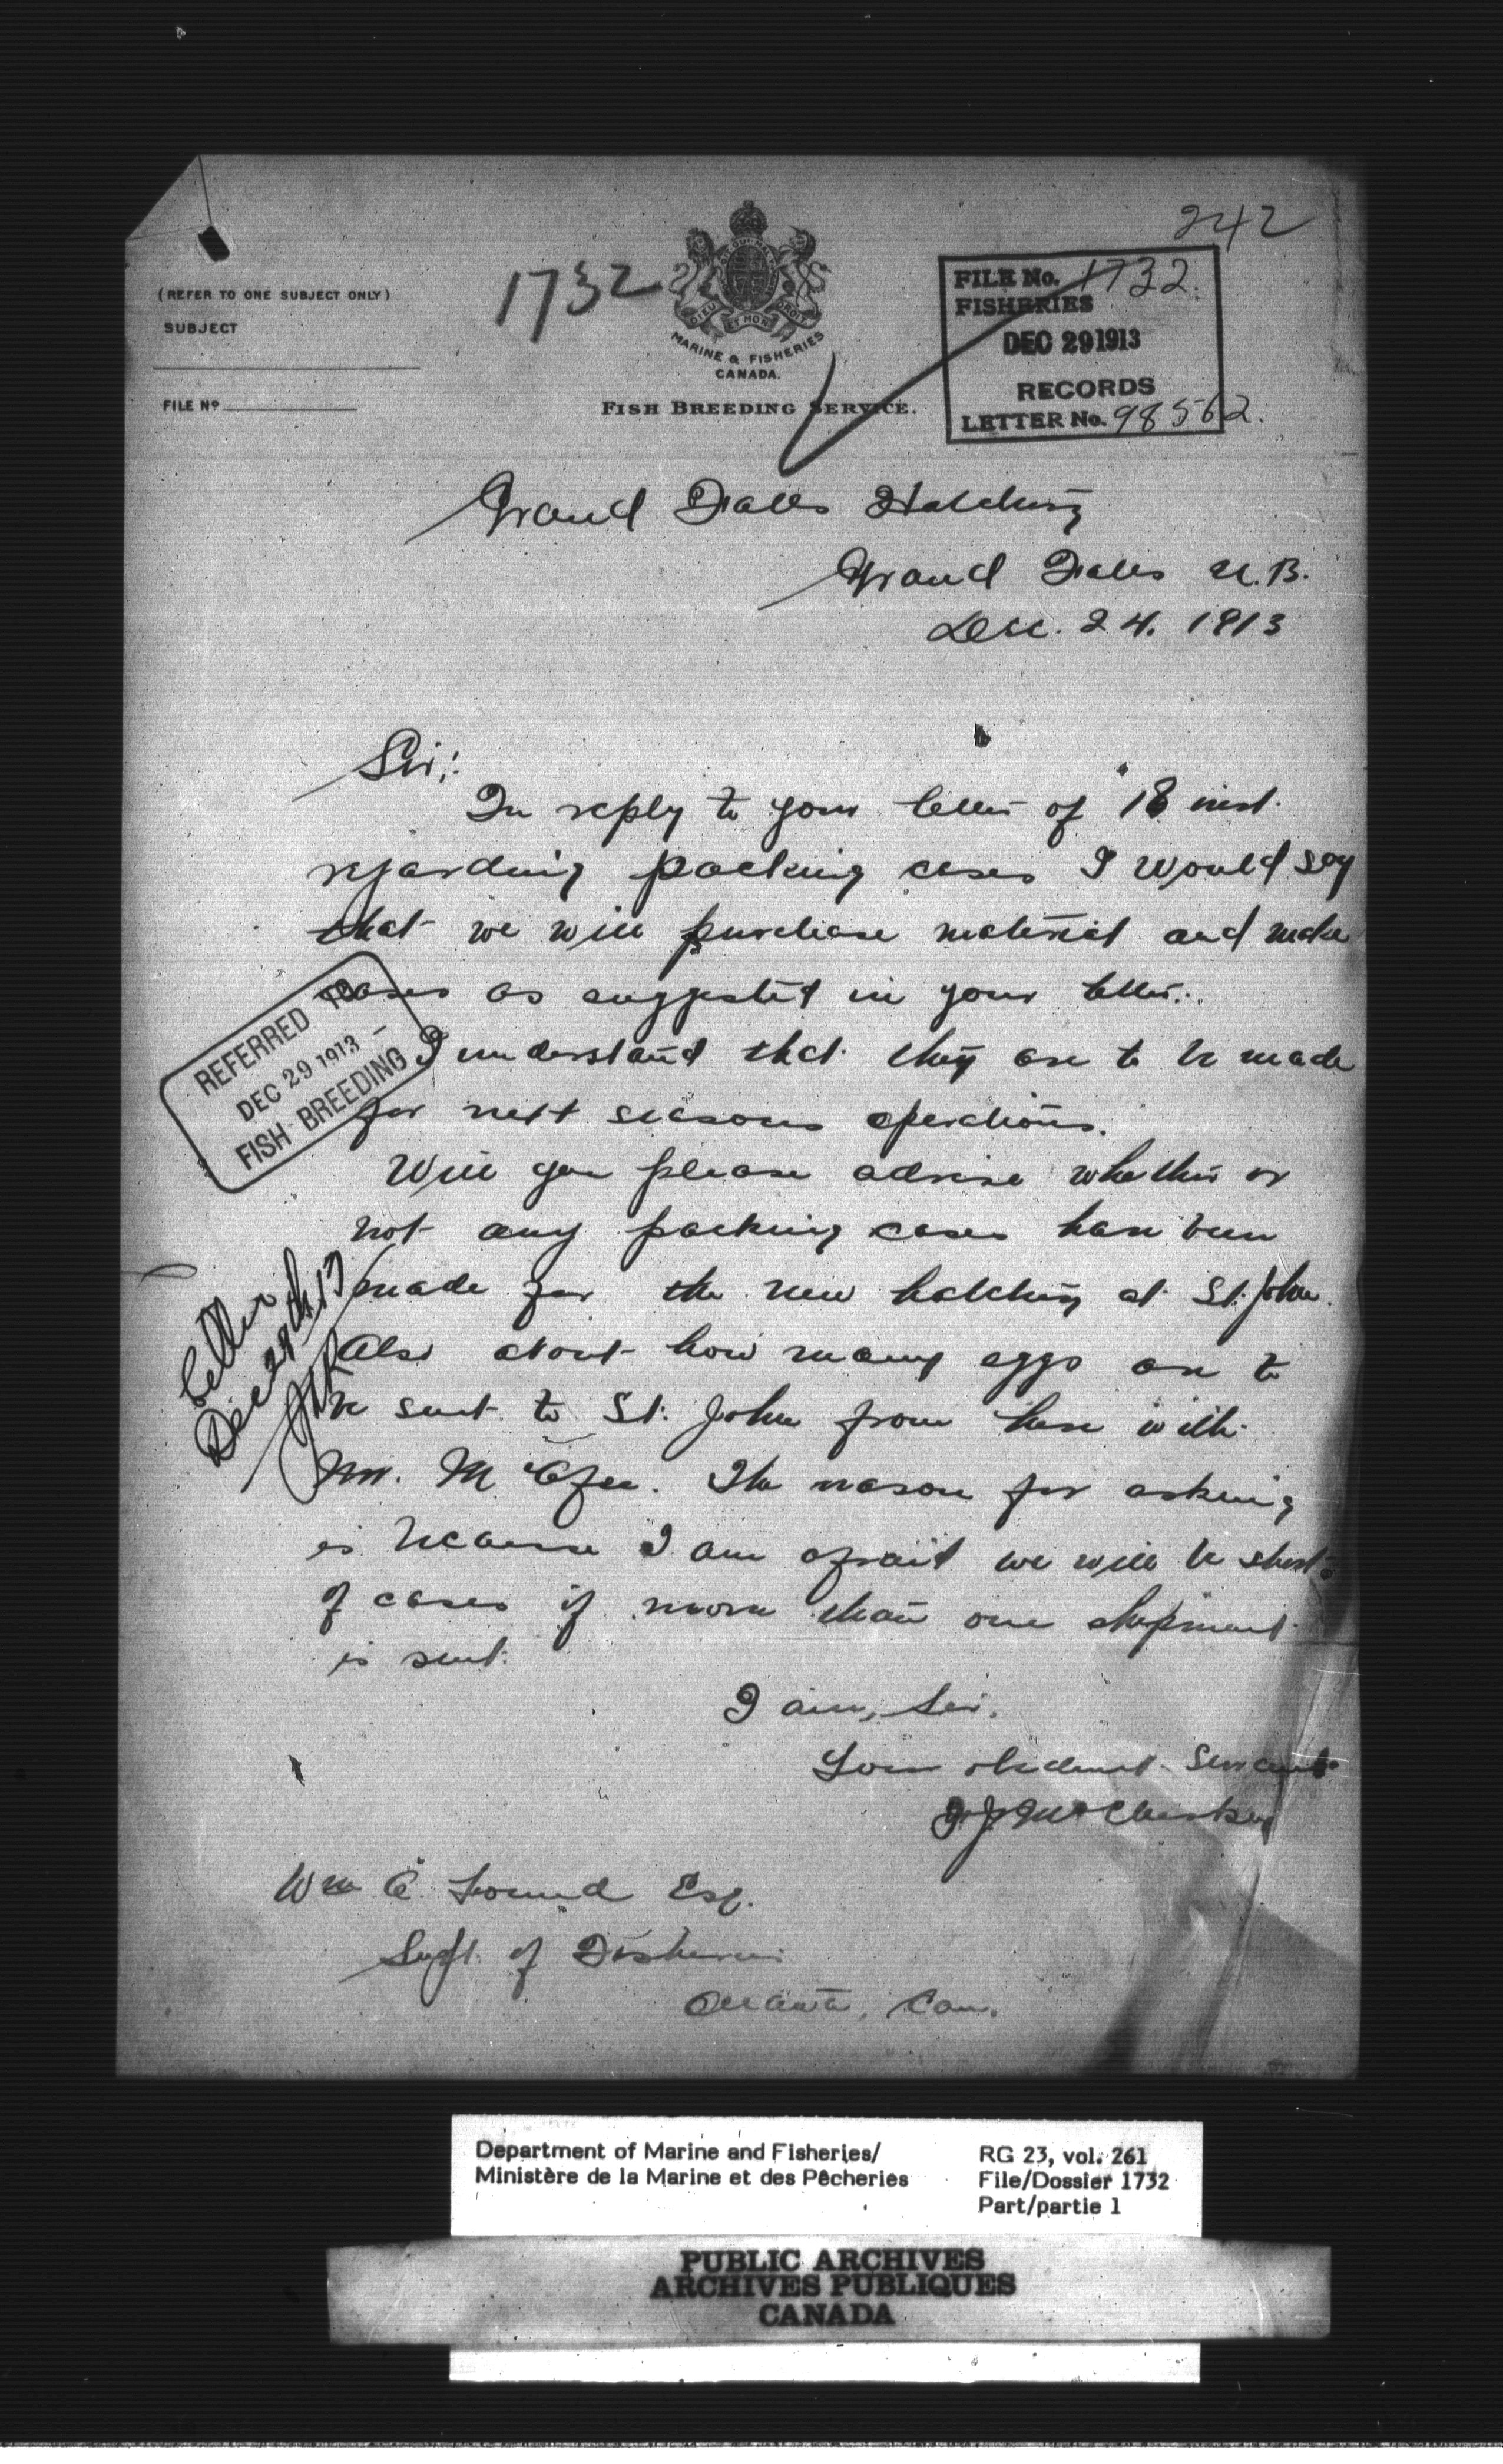 242
(REFER TO ONE SUBJECT ONLY)
SUBJECT
FILE Nº
1732
DIEU ET MON DROIT
MARINE & FISHERIES
CANADA.
FISH BREEDING SERVICE.
FILE No. 1732.
FISHERIES
DEC 29 1913
RECORDS
LETTER No. 98562.
Grand Falls Hatchery
Grand Falls N.B.
Dec. 24. 1913
Sir;:
In reply to your letter of 18 inst.
regarding packing cases I would say
that we will purchase material and make
cases as suggested in your letter.
I understand that they are to be made
for next seasons operations.
Will you please advise whether or
not any packing cases have been
made for the new hatchery at St. John.
Also about how many eggs are to
be sent to St. John from here with
Mr. McAfee. The reason for asking
is because I am afraid we will be short
of cases if more than one shipment
is sent.
I am, Sir,
Your obedient Servant
McCluskey
Wm A. Found Esq.
Supt. of Fisheries
Ottawa, Can.
REFERRED TO
DEC 29 1913
FISH BREEDING
Letter
Dec 29th/13
Department of Marine and Fisheries/
Ministère de la Marine et des Pêcheries
RG 23, vol. 261
File/Dossier 1732
Part/partie 1
PUBLIC ARCHIVES
ARCHIVES PUBLIQUES
CANADA